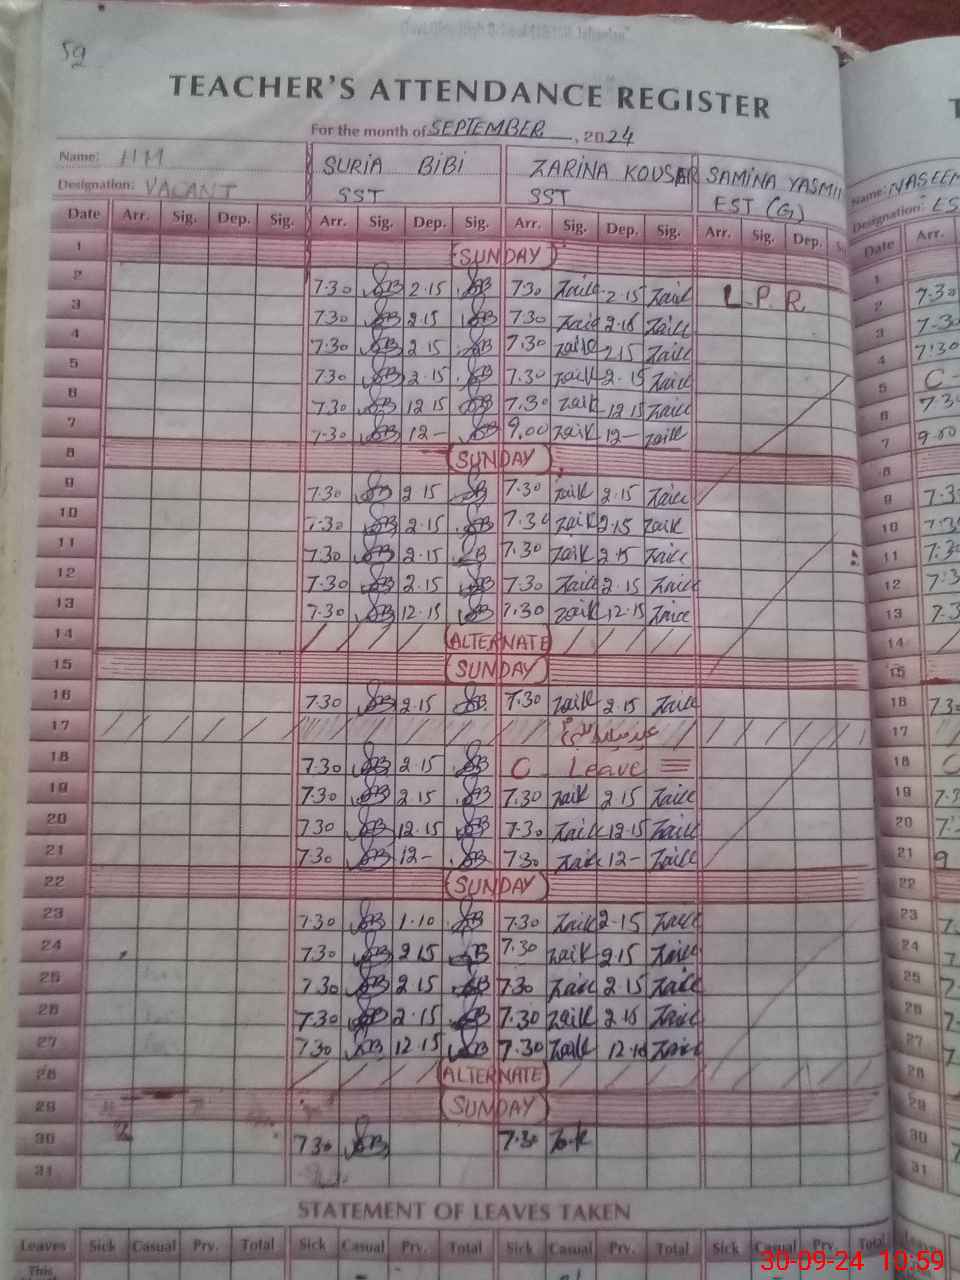 59
TEACHER'S ATTENDANCE REGISTER
For the month of SEPTEMBER, 2024
Name: HM SURIA BIBI ZARINA KOUSAR SAMINA YASMI Name: NASEEM
Designation: VACANT SST SST EST (G) Designation: ES
Date Arr. Sig. Dep. Sig. Arr. Sig. Dep. Sig. Arr. Sig. Dep. Sig. Arr. Sig. Dep. Date Arr.
1 SUNDAY 1
2 7.30 SB 2.15 SB 7.30 Zaik 2.15 Zaik L.P.R. 2 7.30
3 7.30 SB 2.15 SB 7.30 Zaik 2.15 Zaik 3 7.30
4 7.30 SB 2.15 SB 7.30 Zaik 2.15 Zaik 4 7.30
5 7.30 SB 2.15 SB 7.30 Zaik 2.15 Zaik 5 C-
6 7.30 SB 12.15 SB 7.30 Zaik 12.15 Zaik 6 7.3
7 7.30 SB 12- SB 9.00 Zaik 12- Zaik 7 9.00
8 SUNDAY 8
9 7.30 SB 2.15 SB 7.30 Zaik 2.15 Zaik 9 7.3
10 7.30 SB 2.15 SB 7.30 Zaik 2.15 Zaik 10 7.3
11 7.30 SB 2.15 SB 7.30 Zaik 2.15 Zaik 11 7.3
12 7.30 SB 2.15 SB 7.30 Zaik 2.15 Zaik 12 7.3
13 7.30 SB 12.15 SB 7.30 Zaik 12.15 Zaik 13 7.3
14 ALTERNATE 14
15 SUNDAY 15
16 7.30 SB 2.15 SB 7.30 Zaik 2.15 Zaik 16 7.3
17 عید میلاد النبی 17
18 7.30 SB 2.15 SB C. Leave 18 C
19 7.30 SB 2.15 SB 7.30 Zaik 2.15 Zaik 19 7.3
20 7.30 SB 12.15 SB 7.30 Zaik 12.15 Zaik 20 7.
21 7.30 SB 12- SB 7.30 Zaik 12- Zaik 21 9
22 SUNDAY 22
23 7.30 SB 1.10 SB 7.30 Zaik 2.15 Zaik 23 7.
24 7.30 SB 2.15 SB 7.30 Zaik 2.15 Zaik 24 7.
25 7.30 SB 2.15 SB 7.30 Zaik 2.15 Zaik 25 7.
26 7.30 SB 2.15 SB 7.30 Zaik 2.15 Zaik 26 7.
27 7.30 SB 12.15 SB 7.30 Zaik 12.10 Zaik 27 7
28 ALTERNATE 28
29 SUNDAY 29
30 7.30 SB 7.30 Zaik 30 7
31 31
STATEMENT OF LEAVES TAKEN
Leaves Sick Casual Prv. Total Sick Casual Prv. Total Sick Casual Prv. Total Sick Casual Prv. Total Leaves
This
30-09-24 10:59